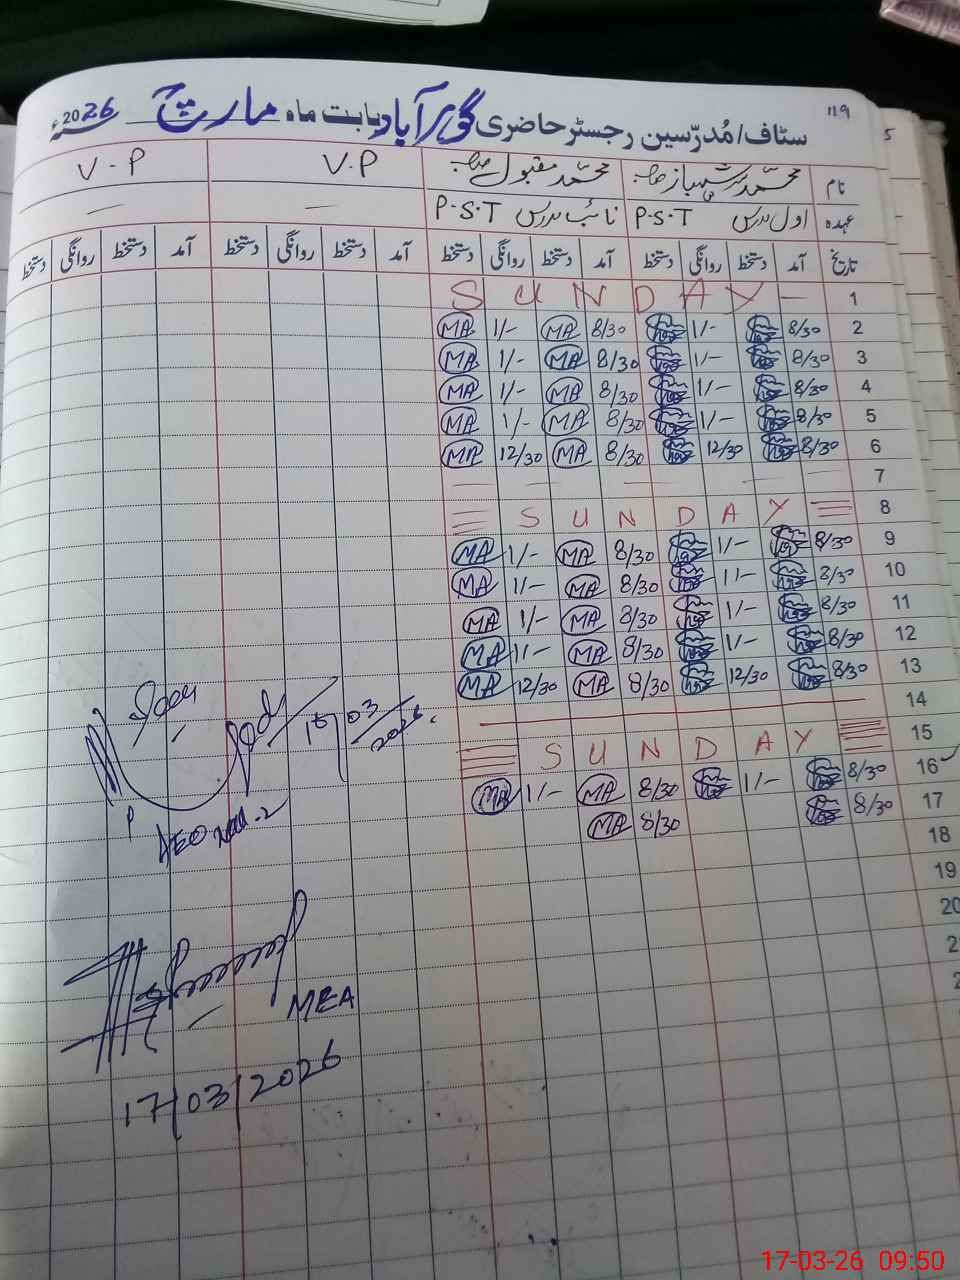 119
سٹاف/مُدرّسین رجسٹر حاضری گوہر آباد بابت ماہ مارچ سنہ 2026ء
نام محمد شہباز صاحب محمد مقبول صاحب V.P V.P
عہدہ اول مدرس P.S.T نائب مدرس P.S.T — —
تاریخ آمد دستخط روانگی دستخط آمد دستخط روانگی دستخط آمد دستخط روانگی دستخط آمد دستخط روانگی دستخط
1 SUNDAY
2 8/30 1/- 8/30 MA 1/- MA
3 8/30 1/- 8/30 MA 1/- MA
4 8/30 1/- 8/30 MA 1/- MA
5 8/30 1/- 8/30 MA 1/- MA
6 8/30 12/30 8/30 MA 12/30 MA
7
8 SUNDAY
9 8/30 1/- 8/30 MA 1/- MA
10 8/30 1/- 8/30 MA 1/- MA
11 8/30 1/- 8/30 MA 1/- MA
12 8/30 1/- 8/30 MA 1/- MA
13 8/30 12/30 8/30 MA 12/30 MA
14
15 SUNDAY
16 8/30 1/- 8/30 MA 1/- MA
17 8/30 8/30 MA
18
19
20
03/2026
AEO
MEA
17/03/2026
17-03-26 09:50